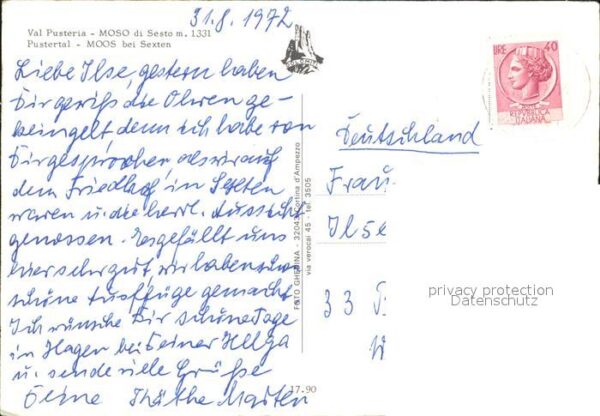 31.8.1972
Val Pusteria - MOSO di Sesto m. 1331
Pustertal - MOOS bei Sexten
Liebe Ilse, gestern haben
Dir gewiß die Ohren ge-
klingelt denn ich habe von
Dir gesprochen, als wir auf
dem Friedhof in Sexten
waren u. die herrl. Aussicht
genossen. Es gefällt uns
hier sehr gut, wir haben schon
schöne Ausflüge gemacht
Ich wünsche Dir schöne Tage
in Hagen bei Deiner Helga
u. sende viele Grüße
Deine Käthe
17-90
FOTO GHEDINA - 32043 Cortina d'Ampezzo
via verocai 45 - tel. 3505
LIRE 40
REPVBBLICA
ITALIANA
Deutschland
Frau
Ilse
33
privacy protection
Datenschutz